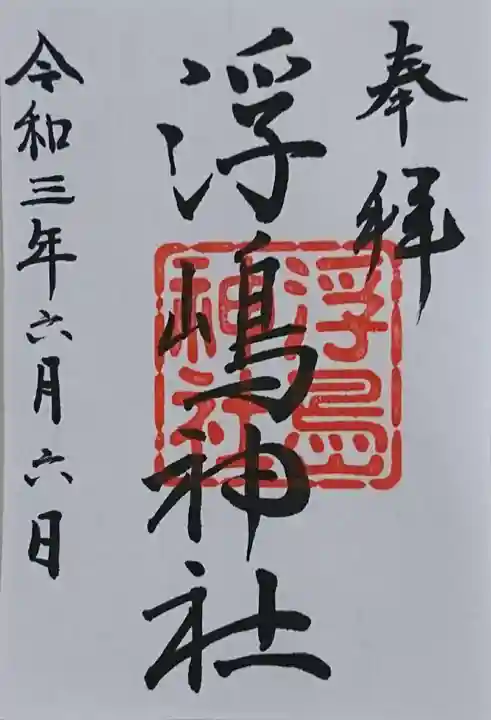 奉拝
浮嶋神社
浮島
神社
令和三年六月六日